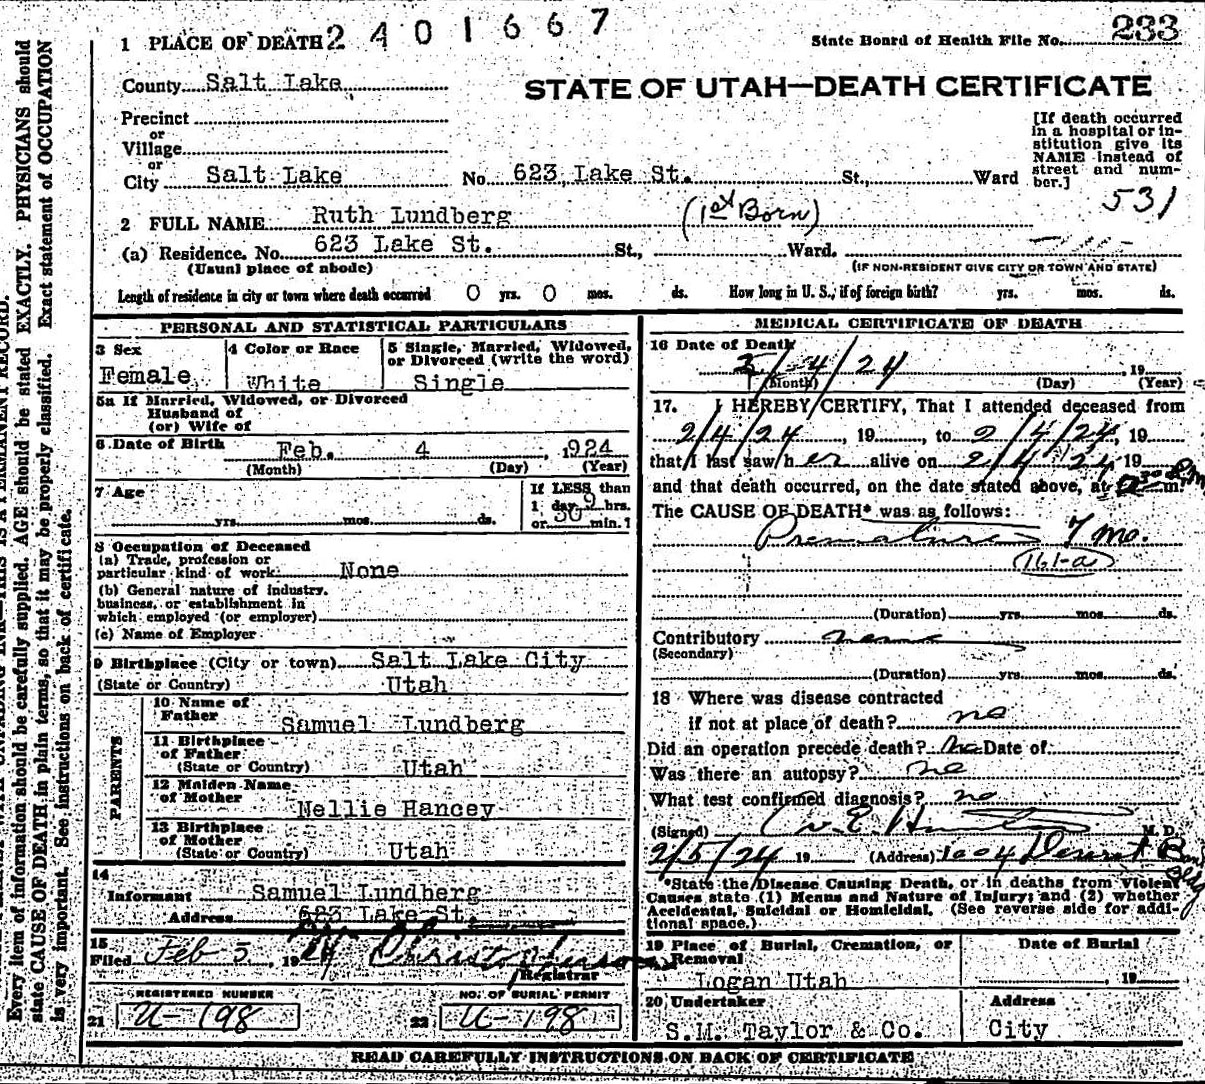 2401667
233
1 PLACE OF DEATH
State Board of Health File No.
County Salt Lake
STATE OF UTAH—DEATH CERTIFICATE
Precinct
or
Village
or
City Salt Lake No. 623 Lake St. St., Ward
[If death occurred
in a hospital or in-
stitution give its
NAME instead of
street and num-
ber.]
531
2 FULL NAME Ruth Lundberg (1st Born)
(a) Residence. No. 623 Lake St. St., Ward.
(Usual place of abode) (IF NON-RESIDENT GIVE CITY OR TOWN AND STATE)
Length of residence in city or town where death occurred 0 yrs. 0 mos. ds. How long in U. S., if of foreign birth? yrs. mos. ds.
PERSONAL AND STATISTICAL PARTICULARS
3 Sex
Female
4 Color or Race
White
5 Single, Married, Widowed,
or Divorced (write the word)
Single
5a If Married, Widowed, or Divorced
Husband of
(or) Wife of
6 Date of Birth Feb. 4, 1924
(Month) (Day) (Year)
7 Age
yrs. mos. ds.
If LESS than
1 day, 9 hrs.
or 30 min. ?
8 Occupation of Deceased
(a) Trade, profession or
particular kind of work None
(b) General nature of industry,
business, or establishment in
which employed (or employer)
(c) Name of Employer
9 Birthplace (City or town) Salt Lake City
(State or Country) Utah
PARENTS
10 Name of
Father Samuel Lundberg
11 Birthplace
of Father
(State or Country) Utah
12 Maiden Name
of Mother Nellie Hancey
13 Birthplace
of Mother
(State or Country) Utah
14
Informant Samuel Lundberg
Address 623 Lake St.
15
Filed Feb 5, 1924
Registrar
REGISTERED NUMBER
21 U-198
NO. OF BURIAL PERMIT
22 U-198
MEDICAL CERTIFICATE OF DEATH
16 Date of Death
4/24, 19
(Month) (Day) (Year)
17. I HEREBY CERTIFY, That I attended deceased from
2/4/24, 19 to 2/4/24, 19
that I last saw her alive on 2/4 24 19
and that death occurred, on the date stated above, at m.
The CAUSE OF DEATH* was as follows:
Premature 7 mo.
(161-a)
(Duration) yrs. mos. ds.
Contributory
(Secondary)
(Duration) yrs. mos. ds.
18 Where was disease contracted
if not at place of death? no
Did an operation precede death? no Date of
Was there an autopsy? no
What test confirmed diagnosis? no
(Signed) M. D.
2/5/24 19 (Address) 1004 Deseret Bank
Bldg
*State the Disease Causing Death, or in deaths from Violent
Causes state (1) Means and Nature of Injury; and (2) whether
Accidental, Suicidal or Homicidal. (See reverse side for addi-
tional space.)
19 Place of Burial, Cremation, or
Removal
Logan Utah
Date of Burial
19
20 Undertaker
S.M. Taylor & Co.
Address
City
READ CAREFULLY INSTRUCTIONS ON BACK OF CERTIFICATE
Every item of information should be carefully supplied. AGE should be stated EXACTLY. PHYSICIANS should
state CAUSE OF DEATH in plain terms, so that it may be properly classified. Exact statement of OCCUPATION
is very important. See instructions on back of certificate.